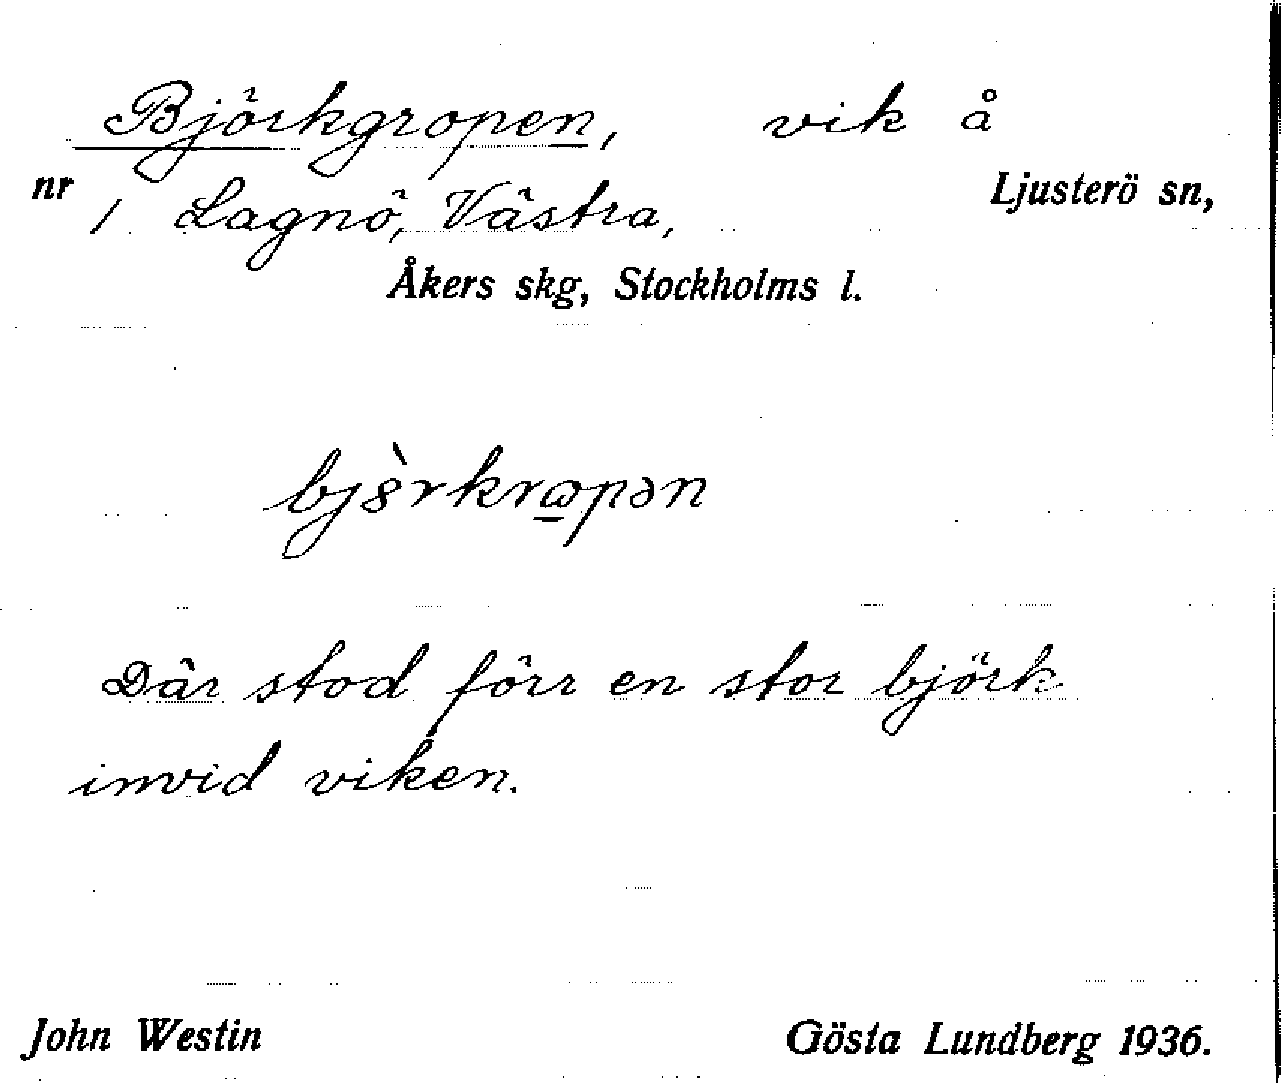 Björkgropen, vik å
nr 1 Lagnö, Västra, Ljusterö sn,
Åkers skg, Stockholms l.
bjȣ̀rkrɷ̲pən
Där stod förr en stor björk
invid viken.
John Westin Gösta Lundberg 1936.